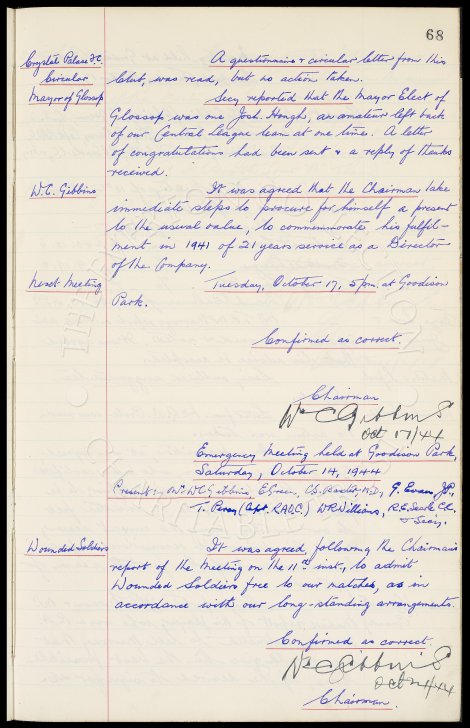 68
Crystal Palace F.C. A questionnaire & circular letter from this
Circular Club, was read, but no action taken.
Mayor of Glossop Secy reported that the Mayor Elect of
Glossop was one Josh. Hough, an amateur left back
of our Central League team at one time. A letter
of congratulations had been sent & a reply of thanks
received.
W.C. Gibbins It was agreed that the Chairman take
immediate steps to procure for himself a present
to the usual value, to commemorate his fulfil-
ment in 1941 of 21 years service as a Director
of the Company.
Next Meeting Tuesday, October 17, 5pm. at Goodison
Park.
Confirmed as correct.
Chairman
Wm C Gibbins
Oct 17/44
Emergency Meeting held at Goodison Park,
Saturday, October 14, 1944
Present :- W.C. Gibbins, E. Green, C.S. Baxter, M.D., G. Evans J.P.,
T. Percy (Capt. R.A.O.C.) W.R. Williams, R.E. Searle
& Secy.
Wounded Soldiers It was agreed, following the Chairman's
report of the Meeting on the 11th inst., to admit
Wounded Soldiers free to our matches, as in
accordance with our long-standing arrangements.
Confirmed as correct
Wm C Gibbins
Oct /44
Chairman.